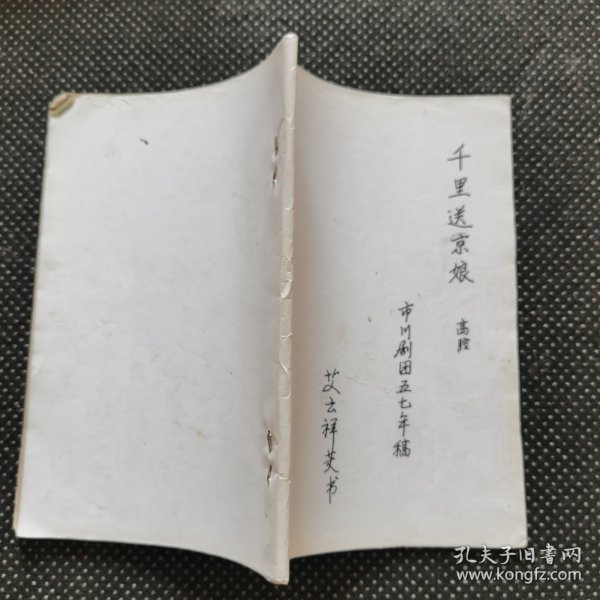 千里送京娘
高腔
市川剧团五七年稿
艾云祥 书
孔夫子旧书网
www.kongfz.com